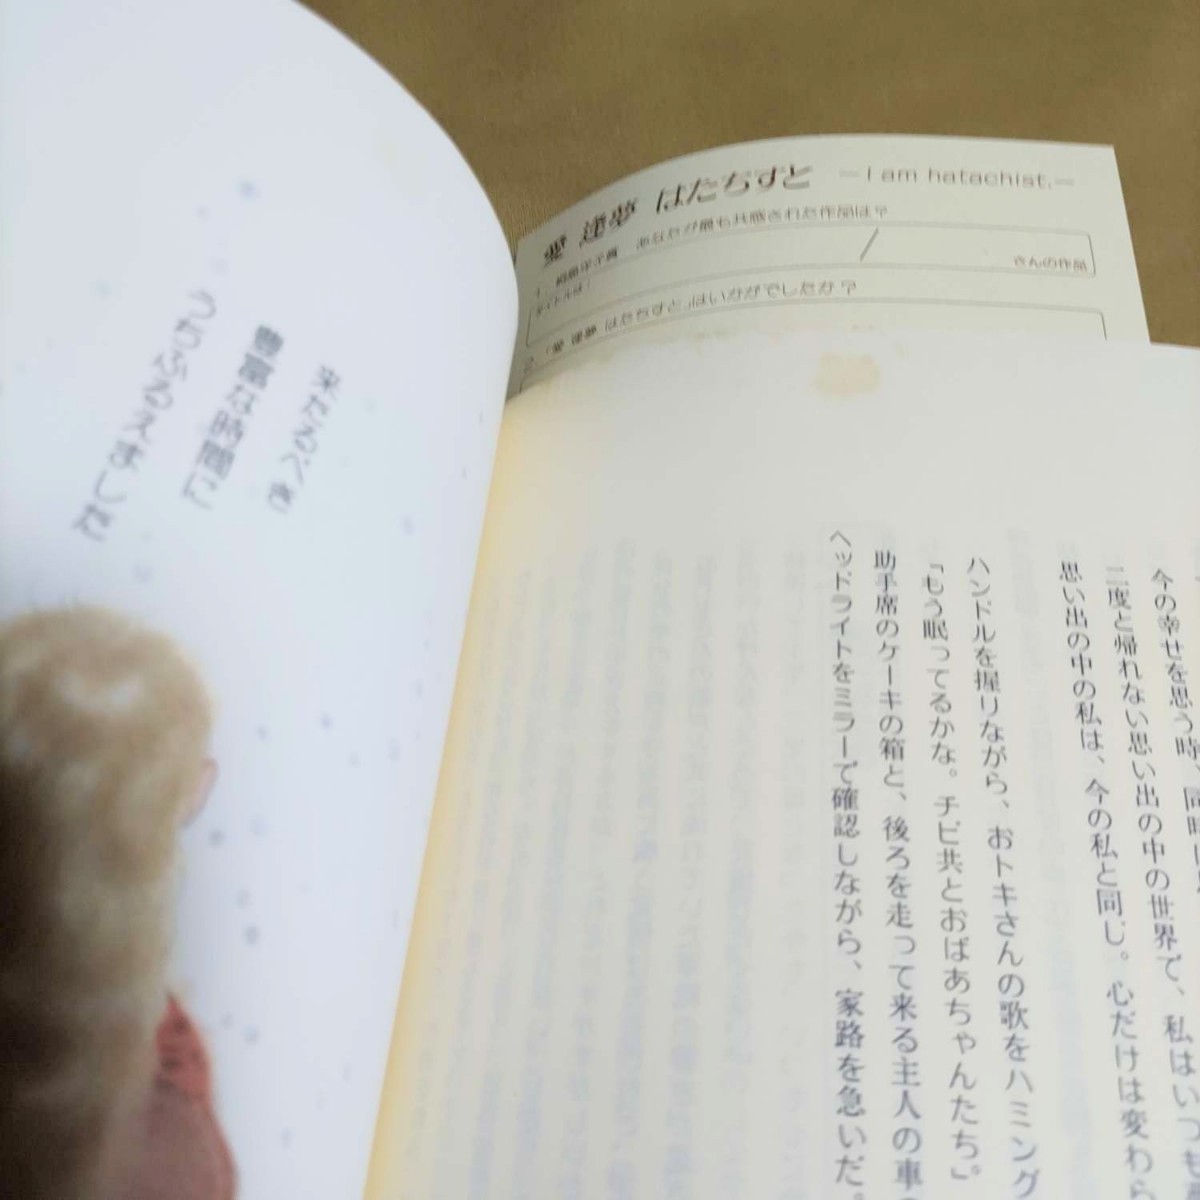 愛 逢夢 はたちすと －I am hatachist.－
あなたが最も共感された作品は？
タイトルは：
さんの作品
2．「愛 逢夢 はたちすと」はいかがでしたか？
今の幸せを思う時、同時に
二度と帰れない思い出の中の世界で、私はいつも
思い出の中の私は、今の私と同じ。心だけは変わら
ハンドルを握りながら、おトキさんの歌をハミング
「もう眠ってるかな。チビ共とおばあちゃんたち」。
助手席のケーキの箱と、後ろを走って来る主人の車の
ヘッドライトをミラーで確認しながら、家路を急いだ。
来たるべき
豊富な時間に
うちふるえました